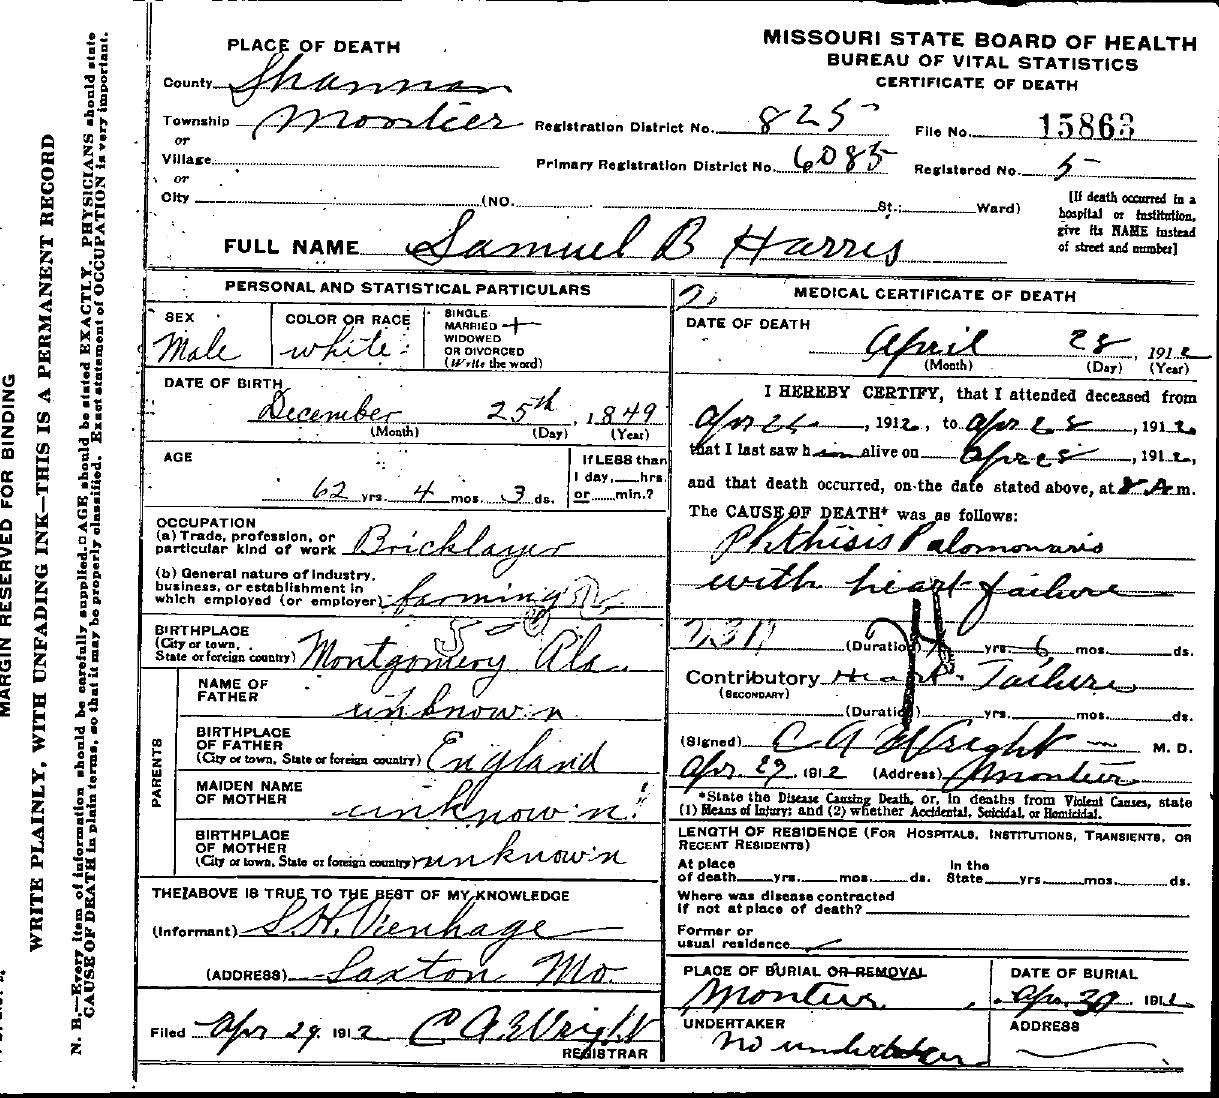 MISSOURI STATE BOARD OF HEALTH
BUREAU OF VITAL STATISTICS
CERTIFICATE OF DEATH
PLACE OF DEATH
County Shannon
Township Montier Registration District No. 825 File No. 15863
or
Village Primary Registration District No. 6085 Registered No. 5
or
City (NO. St.; Ward)
[If death occurred in a
hospital or institution,
give its NAME instead
of street and number]
FULL NAME Samuel B Harris
PERSONAL AND STATISTICAL PARTICULARS
SEX
Male
COLOR OR RACE
white
SINGLE
MARRIED +
WIDOWED
OR DIVORCED
(Write the word)
DATE OF BIRTH
December 25th, 1849
(Month) (Day) (Year)
AGE
62 yrs. 4 mos. 3 ds.
If LESS than
1 day, hrs.
or min.?
OCCUPATION
(a) Trade, profession, or
particular kind of work Bricklayer
(b) General nature of industry,
business, or establishment in
which employed (or employer) farming
BIRTHPLACE
(City or town,
State or foreign country) Montgomery Ala.
PARENTS
NAME OF
FATHER unknown
BIRTHPLACE
OF FATHER
(City or town, State or foreign country) England
MAIDEN NAME
OF MOTHER unknown
BIRTHPLACE
OF MOTHER
(City or town, State or foreign country) unknown
THE ABOVE IS TRUE TO THE BEST OF MY KNOWLEDGE
(Informant) S.H. Vienhage
(ADDRESS) Saxton Mo.
Filed Apr 29. 1912 C A Wright
REGISTRAR
MEDICAL CERTIFICATE OF DEATH
DATE OF DEATH
April 28, 1912
(Month) (Day) (Year)
I HEREBY CERTIFY, that I attended deceased from
Apr, 1912, to Apr 28, 1912
that I last saw him alive on Apr 28, 1912,
and that death occurred, on the date stated above, at 8 A m.
The CAUSE OF DEATH* was as follows:
Phthisis Palomonaris
with heart failure
(Duration) yrs. 6 mos. ds.
Contributory Heart Failure
(SECONDARY)
(Duration) yrs. mos. ds.
(Signed) C A Wright M. D.
Apr 29, 1912 (Address) Montier
*State the Disease Causing Death, or, in deaths from Violent Causes, state
(1) Means of Injury; and (2) whether Accidental, Suicidal, or Homicidal.
LENGTH OF RESIDENCE (FOR HOSPITALS, INSTITUTIONS, TRANSIENTS, OR
RECENT RESIDENTS)
At place In the
of death yrs. mos. ds. State yrs. mos. ds.
Where was disease contracted
if not at place of death?
Former or
usual residence
PLACE OF BURIAL OR REMOVAL
Montier
DATE OF BURIAL
Apr. 30 1912
UNDERTAKER
no undertaker
ADDRESS
MARGIN RESERVED FOR BINDING
WRITE PLAINLY, WITH UNFADING INK—THIS IS A PERMANENT RECORD
N. B.—Every item of information should be carefully supplied. AGE should be stated EXACTLY. PHYSICIANS should state
CAUSE OF DEATH in plain terms, so that it may be properly classified. Exact statement of OCCUPATION is very important.